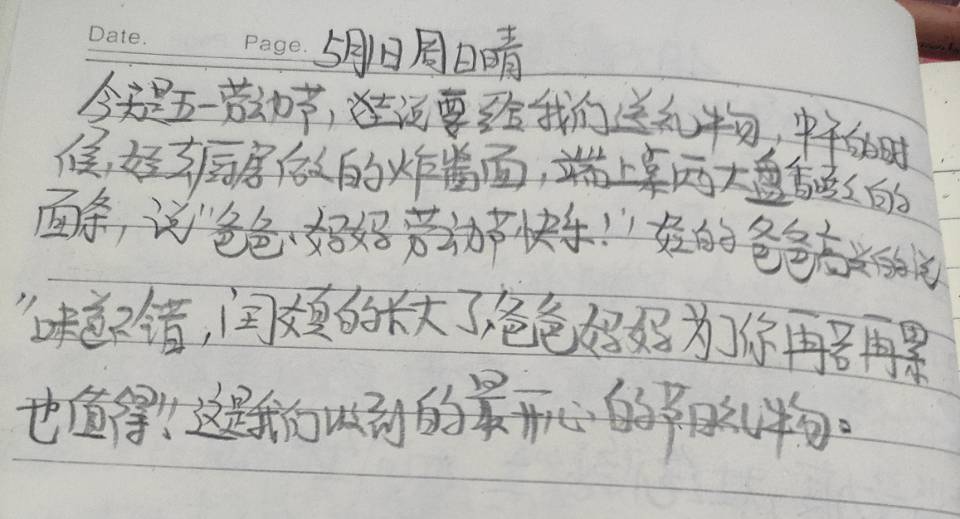 Date. Page. 5月1日周日晴
今天是五一劳动节,娃说要给我们送礼物,中午的时
候,娃去厨房做的炸酱面,端上桌两大盘香喷喷的
面条,说"爸爸、妈妈劳动节快乐!"娃的爸爸高兴的说
"味道不错,闺女真的长大了,爸爸妈妈为了你再苦再累
也值得"!这是我们收到的最开心的节日礼物。